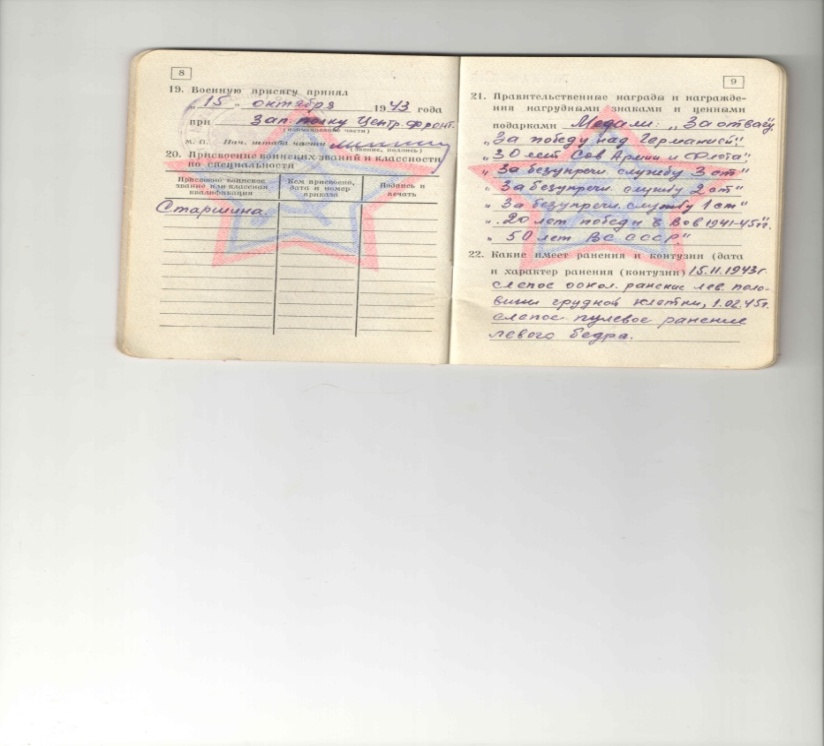 8
19. Военную присягу принял
„15" октября 1943 года
при Зап. полку Центр. фронт.
(наименование части)
М. П. Нач. штаба части
(звание, подпись)
20. Присвоение воинских званий и классности
по специальности
Присвоено воинское звание или классная квалификация
Кем присвоено, дата и номер приказа
Подпись и печать
Старшина
9
21. Правительственные награды и награжде-
ния нагрудными знаками и ценными
подарками Медали: „За отвагу"
„За победу над Германией"
„30 лет Сов Армии и Флота"
„За безупречн. службу 3 ст"
„За безупречн. службу 2 ст"
„За безупречн. службу 1 ст"
„20 лет победы в Вов 1941-45гг."
„50 лет ВС СССР."
22. Какие имеет ранения и контузии (дата
и характер ранения (контузии) 15.11.1943г
слепое оскол. ранение лев. поло-
вины грудной клетки, 1.02.45г.
слепое пулевое ранение
левого бедра.